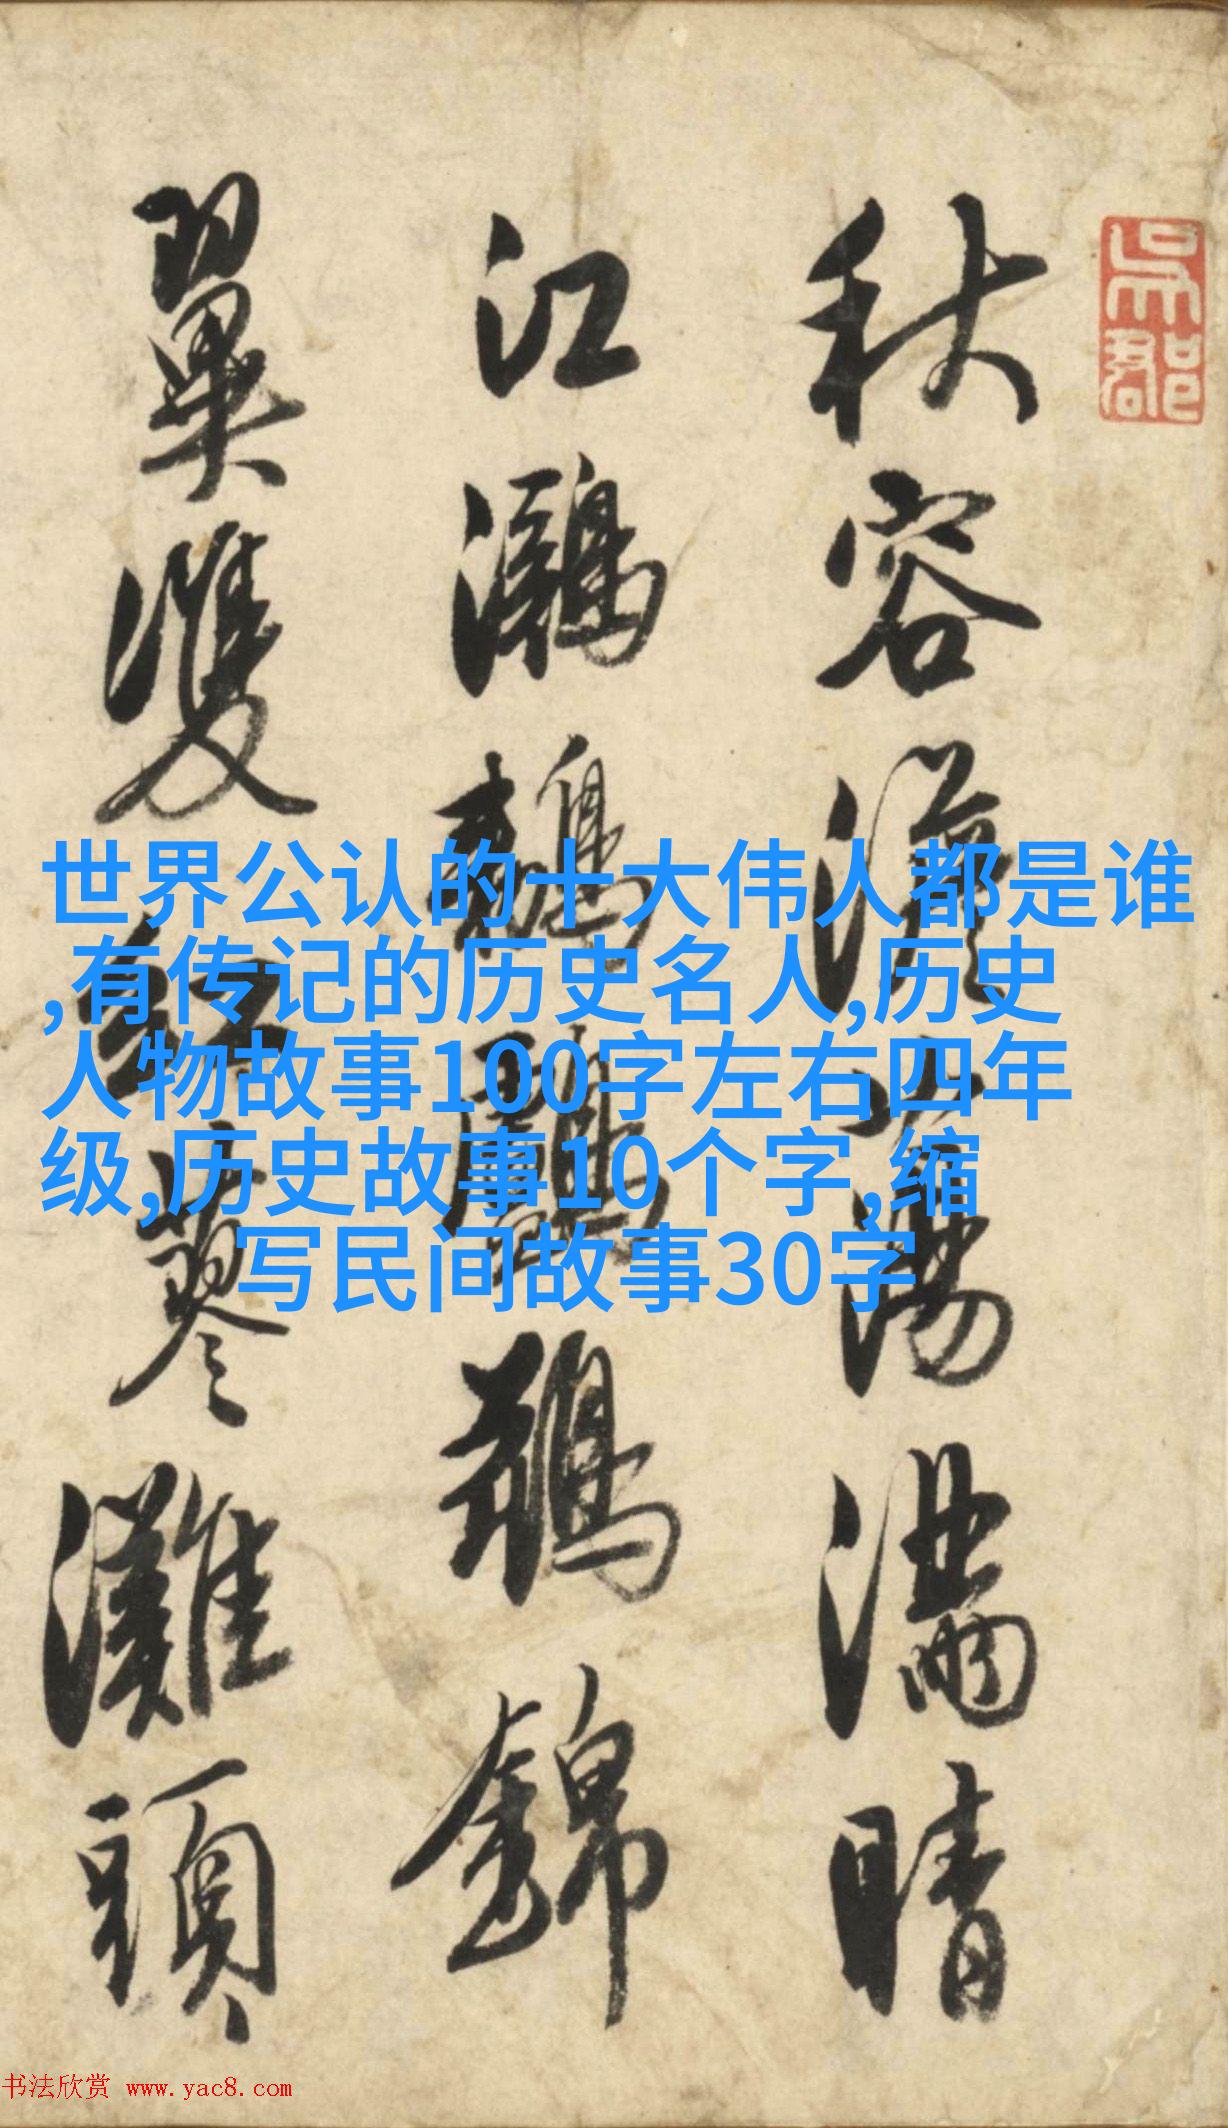 吳郡
秋容澹蕩滿晴
江鸂鶒鸕鶿錦
翼雙紅蓼灘頭
世界公认的十大伟人都是谁
,有传记的历史名人,历史
人物故事100字左右四年
级,历史故事10个字,缩
写民间故事30字
书法欣赏 www.yac8.com